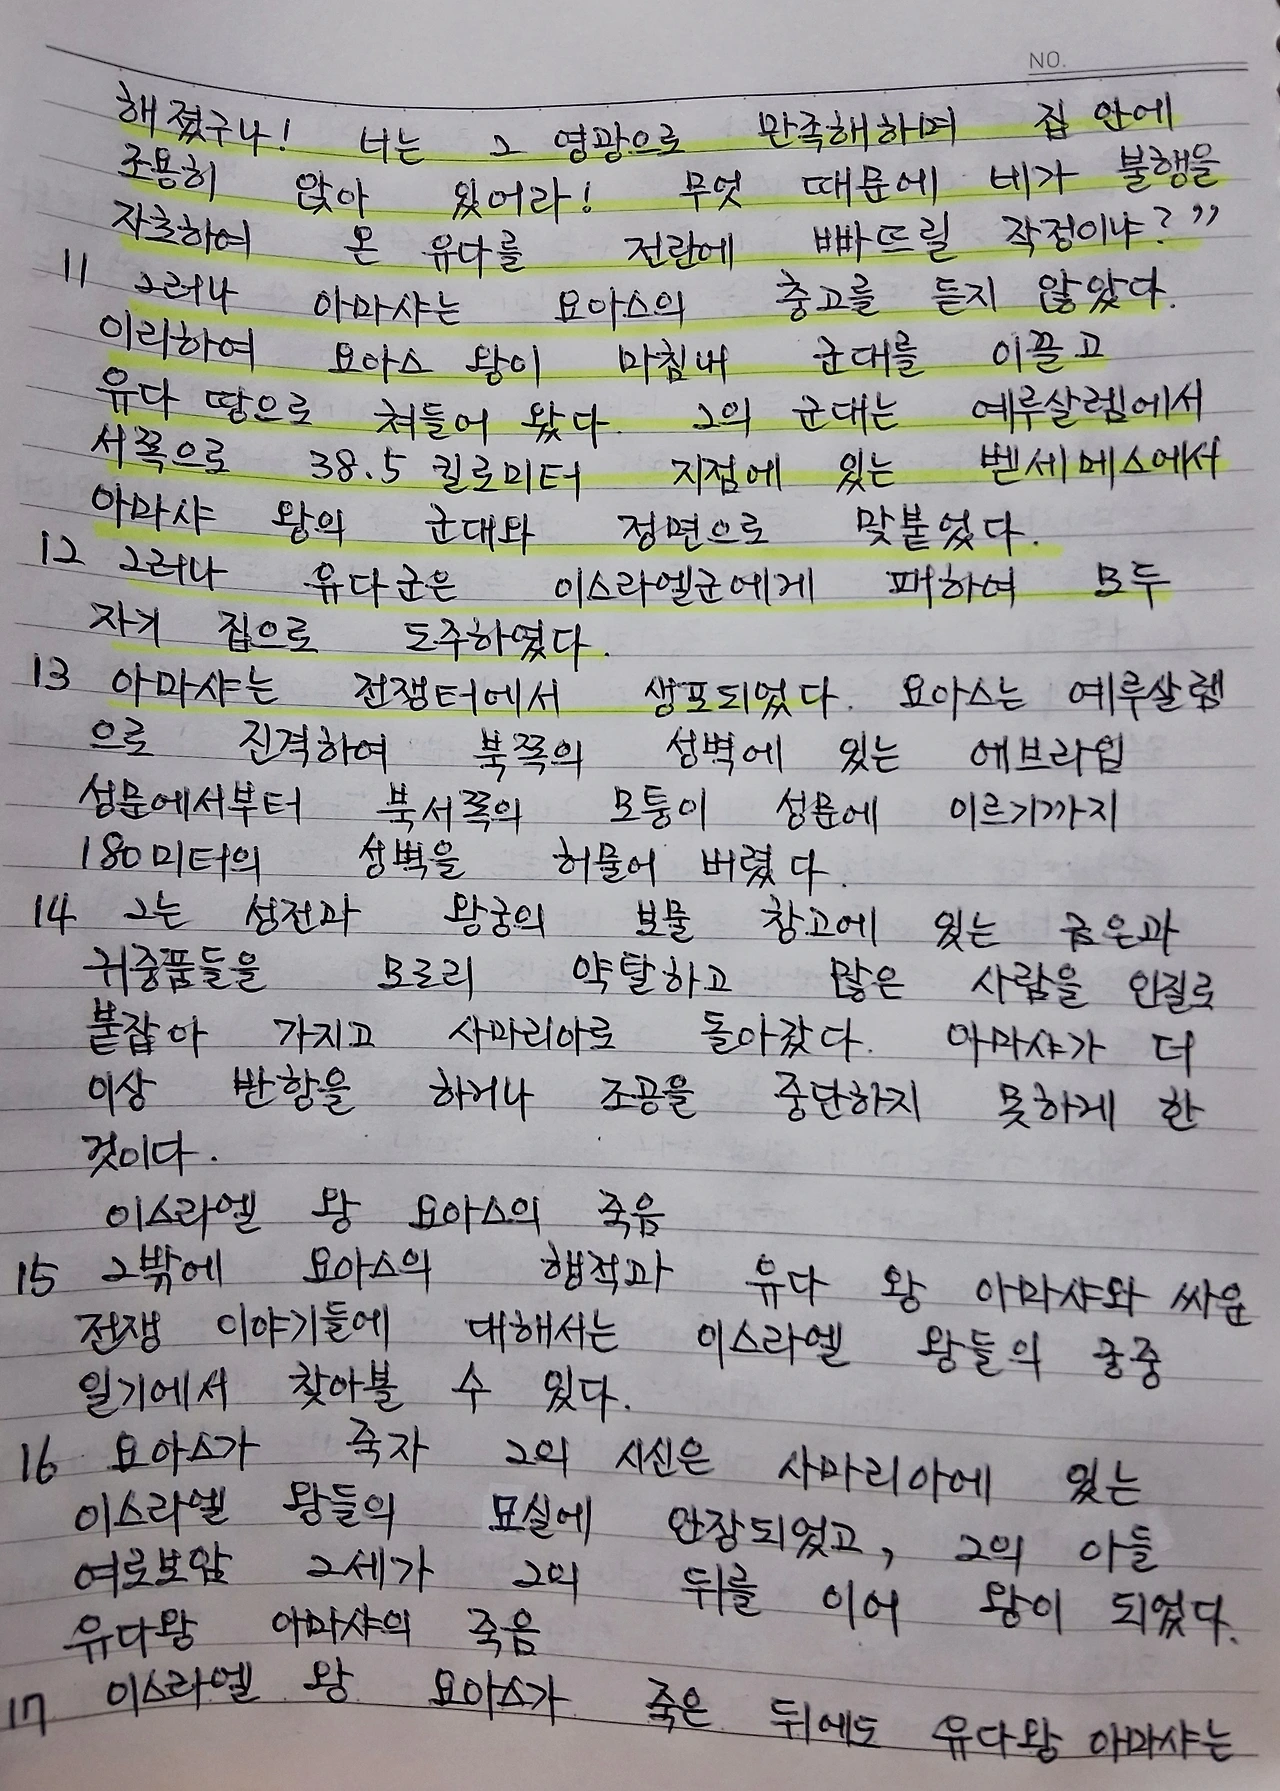 NO.
해졌구나! 너는 그 영광으로 만족해하며 집 안에
조용히 앉아 있어라! 무엇 때문에 네가 불행을
자초하여 온 유다를 전란에 빠뜨릴 작정이냐?”
11 그러나 아마샤는 요아스의 충고를 듣지 않았다.
이리하여 요아스 왕이 마침내 군대를 이끌고
유다 땅으로 쳐들어 왔다. 그의 군대는 예루살렘에서
서쪽으로 38.5 킬로미터 지점에 있는 벤세메스에서
아마샤 왕의 군대와 정면으로 맞붙었다.
12 그러나 유다군은 이스라엘군에게 패하여 모두
자기 집으로 도주하였다.
13 아마샤는 전쟁터에서 생포되었다. 요아스는 예루살렘
으로 진격하여 북쪽의 성벽에 있는 에브라임
성문에서부터 북서쪽의 모퉁이 성문에 이르기까지
180미터의 성벽을 허물어 버렸다.
14 그는 성전과 왕궁의 보물 창고에 있는 금은과
귀중품들을 모조리 약탈하고 많은 사람을 인질로
붙잡아 가지고 사마리아로 돌아갔다. 아마샤가 더
이상 반항을 하거나 조공을 중단하지 못하게 한
것이다.
이스라엘 왕 요아스의 죽음
15 그밖에 요아스의 행적과 유다 왕 아마샤와 싸운
전쟁 이야기들에 대해서는 이스라엘 왕들의 궁중
일기에서 찾아볼 수 있다.
16 요아스가 죽자 그의 시신은 사마리아에 있는
이스라엘 왕들의 묘실에 안장되었고, 그의 아들
여로보암 2세가 그의 뒤를 이어 왕이 되었다.
유다왕 아마샤의 죽음
17 이스라엘 왕 요아스가 죽은 뒤에도 유다왕 아마샤는